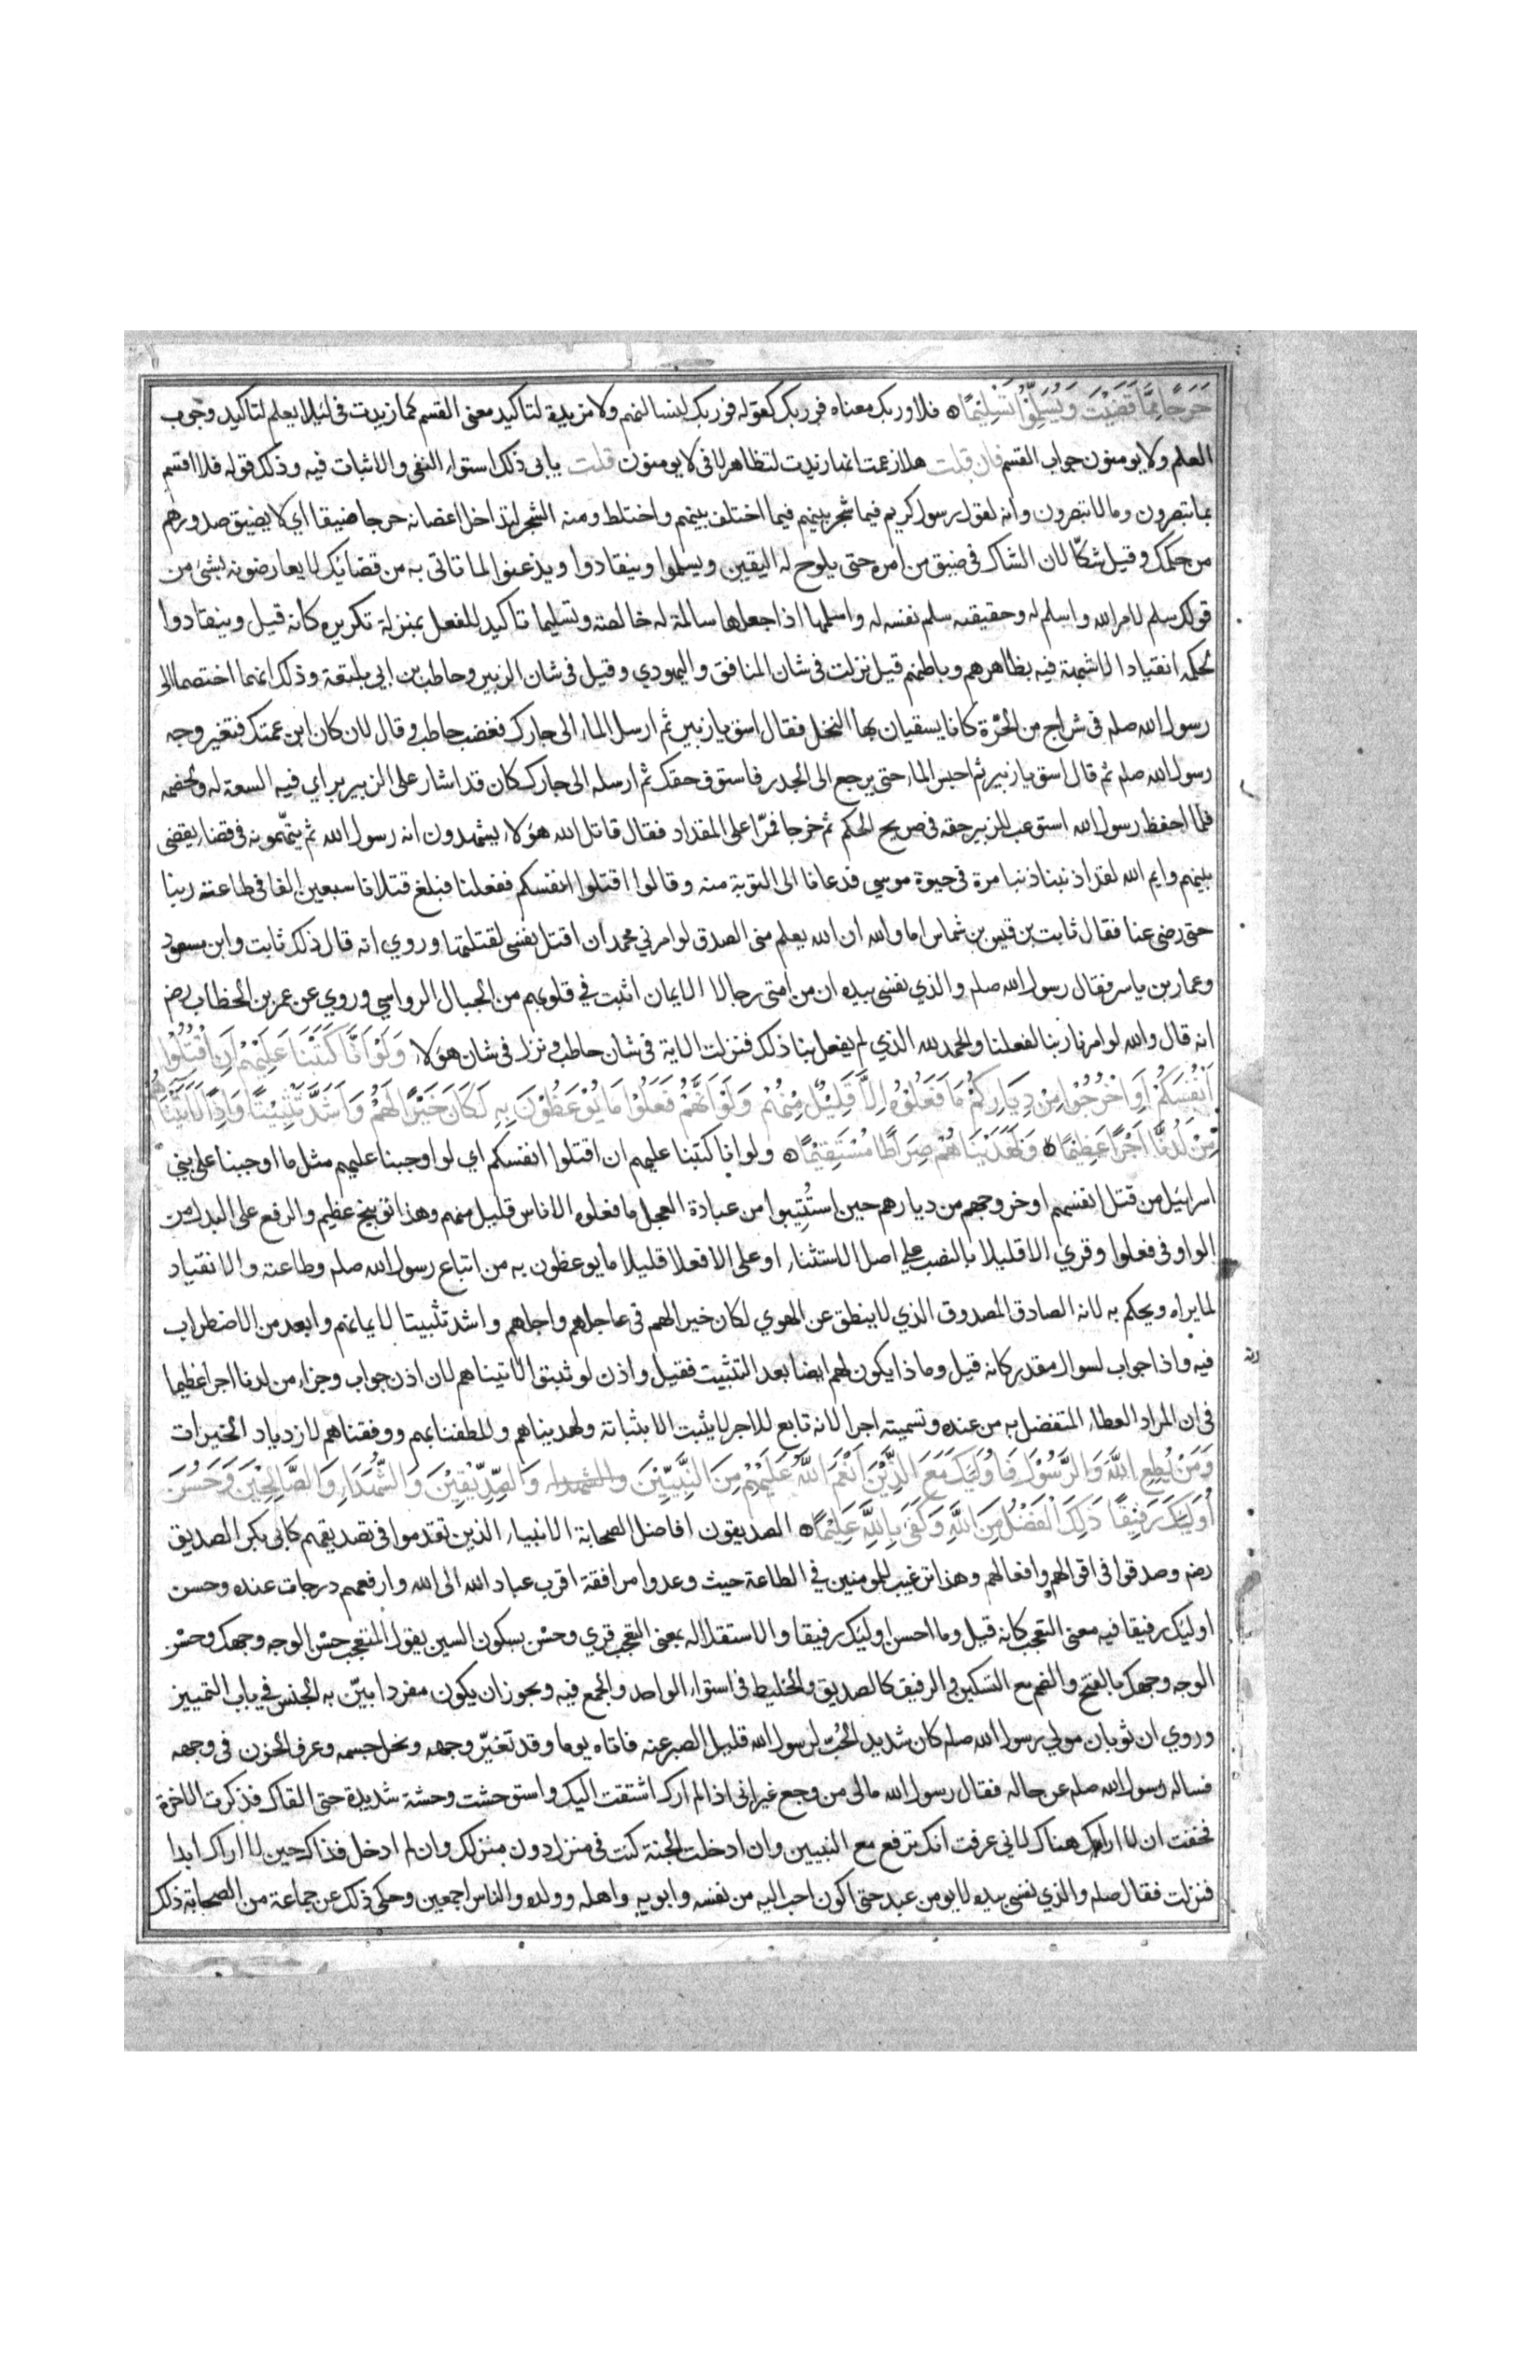 حَرَجًا مِمَّا قَضَيْتَ وَيُسَلِّمُوْا تَسْلِيْمًا ۞ فلا وربك معناه فوربك كقوله فوربك لنسالنهم ولا مزيدة لتاكيد معنى القسم كما زيدت في لئلا يعلم لتاكيد وجوب
العلم ولا يومنون جواب القسم فان قلت هلا زعمت انها زيدت لتظاهر لا في لا يومنون قلت يابى ذلك استواء النفي والاثبات فيه وذلك قوله فلا اقسم
بما تبصرون وما لا تبصرون وانه لقول رسول كريم فيما شجر بينهم فيما اختلف بينهم واختلط ومنه الشجر لتداخل اغصانه حرجا ضيقا اي لا يضيق صدورهم
من حكمك وقيل شكّا لان الشاك في ضيق من امره حتى يلوح له اليقين ويسلموا وينقادوا ويذعنوا لما تاتى به من قضائك لا يعارضونه بشئ من
قولك سلم لامر الله واسلم له وحقيقته سلم نفسه له واسلمها اذا جعلها سالمة له خالصة وتسليما تاكيد للفعل بمنزلة تكريره كانه قيل وينقادوا
لحكمه انقيادا لا شبهة فيه بظاهرهم وباطنهم قيل نزلت في شان المنافق واليهودي وقيل في شان الزبير وحاطب بن ابي بلتعة وذلك انهما اختصما الى
رسول الله صلم في شراج من الحَرّة كانا يسقيان بها النخل فقال اسق يا زبير ثم ارسل الماء الى جارك فغضب حاطب وقال لان كان ابن عمتك فتغير وجه
رسول الله صلم ثم قال اسق يا زبير ثم احبس الماء حتى يرجع الى الجدر فاستوف حقك ثم ارسله الى جارك كان قد اشار على الزبير براي فيه السعة له ولخصمه
فلما احفظ رسول الله استوعب للزبير حقه في صريح الحكم ثم خرجا فمرّا على المقداد فقال قاتل الله هؤلا يشهدون انه رسول الله ثم يتهّمونه في قضاء يقضى
بينهم وايم الله لقد اذنبنا ذنبا مرة في حيوة موسى فدعانا الى التوبة منه وقالوا اقتلوا انفسكم ففعلنا فبلغ قتلانا سبعين الفا في طاعة ربنا
حتى رضى عنا فقال ثابت بن قيس بن شماس اما والله ان الله يعلم منى الصدق لو امرني محمد ان اقتل نفسى لقتلتها وروي انه قال ذلك ثابت وابن مسعود
وعمار بن ياسر فقال رسول الله صلم والذي نفسى بيده ان من امتى رجالا الايمان اثبت في قلوبهم من الجبال الرواسي وروي عن عمر بن الخطاب رضه
انه قال والله لو امرنا ربنا لفعلنا والحمد لله الذي لم يفعل بنا ذلك فنزلت الاية في شان حاطب ونزل في شان هؤلاء وَلَوْ اَنَّا كَتَبْنَا عَلَيْهِمْ اَنِ اقْتُلُوْا
اَنْفُسَكُمْ اَوِ اخْرُجُوْا مِنْ دِيَارِكُمْ مَا فَعَلُوْهُ اِلَّا قَلِيْلٌ مِنْهُمْ وَلَوْ اَنَّهُمْ فَعَلُوْا مَا يُوْعَظُوْنَ بِهِ لَكَانَ خَيْرًا لَهُمْ وَاَشَدَّ تَثْبِيْتًا وَاِذًا لَاٰتَيْنَاهُمْ
مِنْ لَدُنَّا اَجْرًا عَظِيْمًا ۞ وَلَهَدَيْنَاهُمْ صِرَاطًا مُسْتَقِيْمًا ۞ ولو انا كتبنا عليهم ان اقتلوا انفسكم اي لو اوجبنا عليهم مثل ما اوجبنا على بني
اسرائيل من قتل انفسهم او خروجهم من ديارهم حين استُتِيبوا من عبادة العجل ما فعلوه الا ناس قليل منهم وهذا توبيخ عظيم والرفع على البدل من
الواو في فعلوا وقري الا قليلا بالنصب على اصل الاستثناء او على الا فعلا قليلا ما يوعظون به من اتباع رسول الله صلم وطاعته والانقياد
لما يراه ويحكم به لانه الصادق المصدوق الذي لا ينطق عن الهوي لكان خيرا لهم في عاجلهم واجلهم واشد تثبيتا لايمانهم وابعد من الاضطراب
فيه واذا جواب لسوال مقدر كانه قيل وماذا يكون لهم ايضا بعد التثبيت فقيل واذن لو ثبتوا لاتيناهم لان اذن جواب وجزاء من لدنا اجرا عظيما
في ان المراد العطاء المتفضل به من عنده وتسميته اجرا لانه تابع للاجر لا يثبت الا بثباته ولهديناهم وللطفنا بهم ووفقناهم لازدياد الخيرات
وَمَنْ يُطِعِ اللّٰهَ وَالرَّسُوْلَ فَاُولٰئِكَ مَعَ الَّذِيْنَ اَنْعَمَ اللّٰهُ عَلَيْهِمْ مِنَ النَّبِيّيْنَ والشهداء وَالصِّدِّيْقِيْنَ وَالشُّهَدَاءِ وَالصَّالِحِيْنَ وَحَسُنَ
اُولٰئِكَ رَفِيْقًا ذٰلِكَ الْفَضْلُ مِنَ اللّٰهِ وَكَفَى بِاللّٰهِ عَلِيْمًا ۞ الصديقون افاضل الصحابة الانبياء الذين تقدموا في تصديقهم كابي بكر الصديق
رضه وصدقوا في اقوالهم وافعالهم وهذا ترغيب للمومنين في الطاعة حيث وعدوا مرافقة اقرب عباد الله الى الله وارفعهم درجات عنده وحسن
اولئك رفيقا فيه معنى التعجب كانه قيل وما احسن اولئك رفيقا والاستقلاله بمعنى التعجب قري وحسْن بسكون السين يقول المتعجب حسْن الوجه وجهك وحسْن
الوجه وجهك بالفتح والضم مع التسكين والرفيق كالصديق والخليط في استواء الواحد والجمع فيه ويجوز ان يكون مفردا بيّن به الجنس في باب التمييز
وروي ان ثوبان مولي رسول الله صلم كان شديد الحُبّ لرسول الله قليل الصبر عنه فاتاه يوما وقد تغيّر وجهه ونحل جسمه وعرف الحزن في وجهه
فساله رسول الله صلم عن حاله فقال رسول الله مالى من وجع غير انى اذا لم ارك اشتقت اليك واستوحشت وحشة شديدة حتى القاك فذكرت الاخرة
فخفت ان لا اراك هناك لاني عرفت انك ترفع مع النبيين وان ادخلت الجنة كنت في منزل دون منزلك وان لم ادخل فذاك حين لا اراك ابدا
فنزلت فقال صلم والذي نفسى بيده لا يومن عبد حتى اكون احب اليه من نفسه وابويه واهله وولده والناس اجمعين وحكى ذلك عن جماعة من الصحابة ذلك